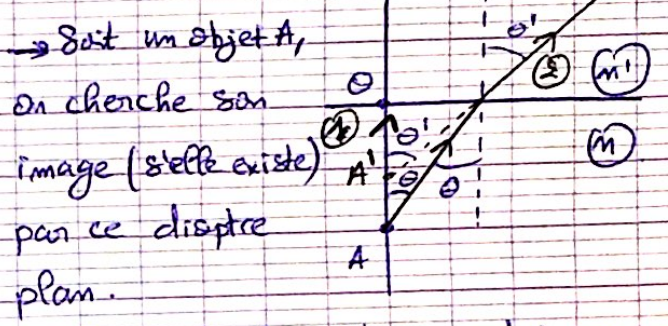 → Soit un objet A,
on cherche son
image (s'elle existe)
par ce dioptre
plan.
θ'
②
n'
O
①
θ'
n
A'
θ
θ
A